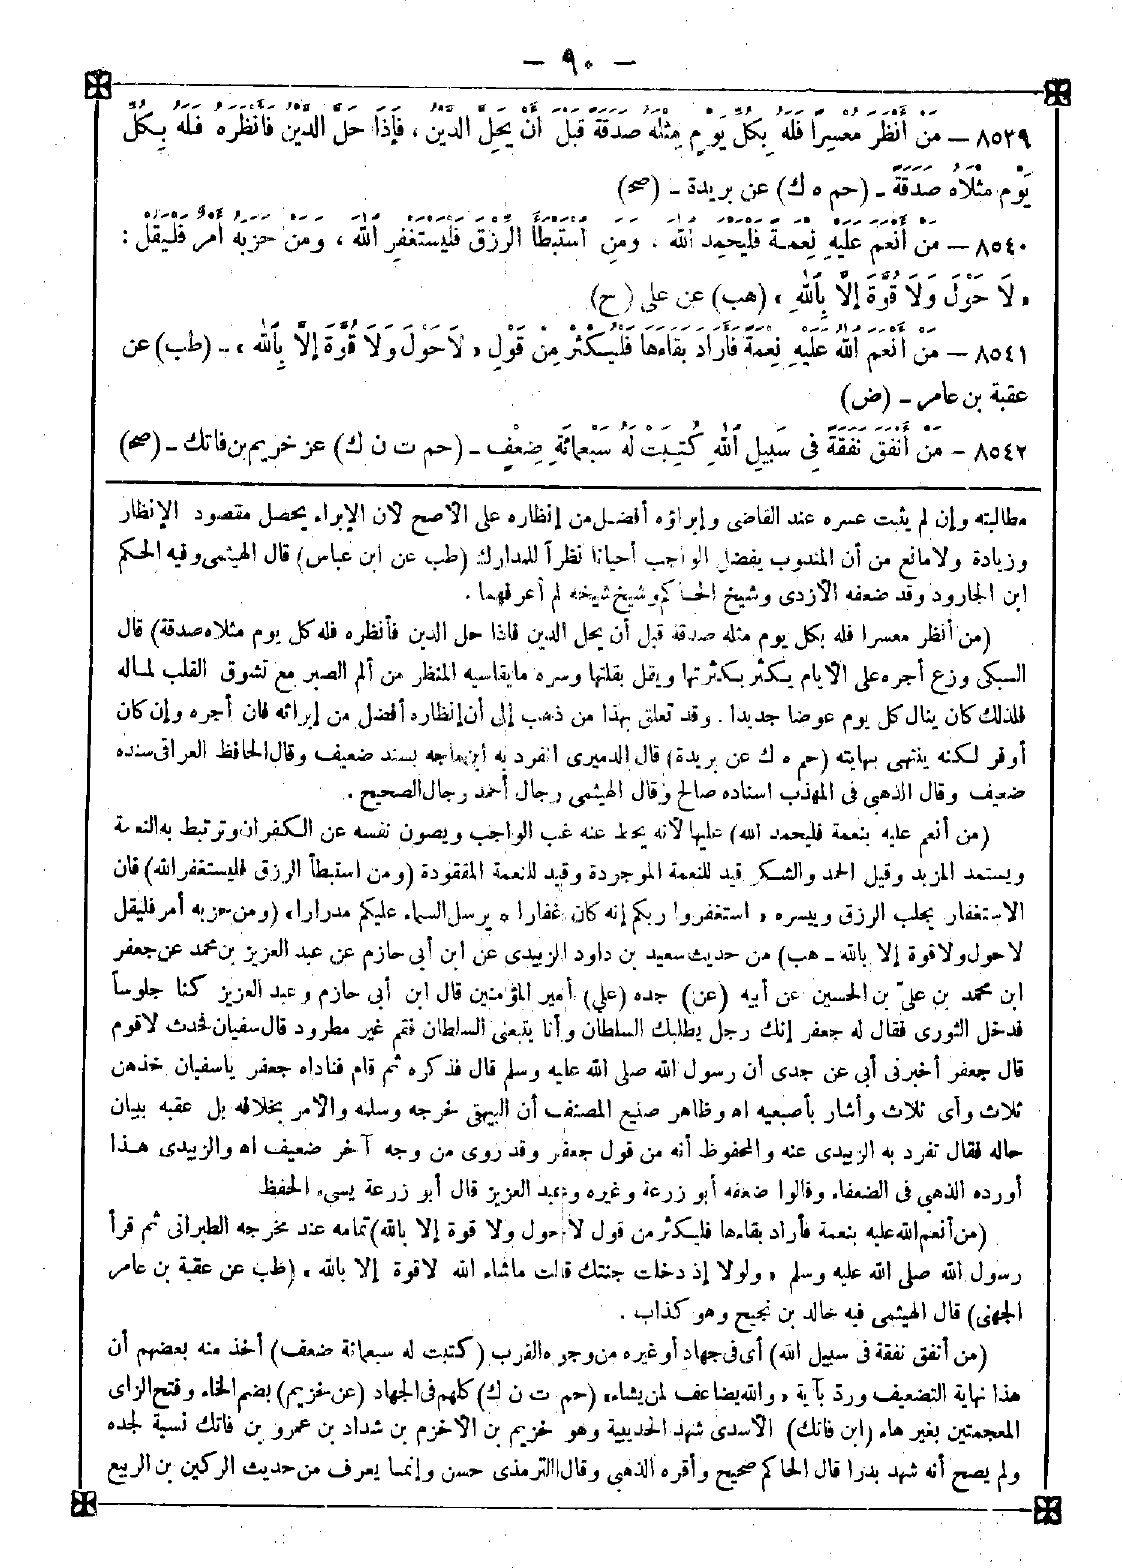 — ٩٠ —
٨٥٣٩ — مَنْ أَنْظَرَ مُعْسِرًا فَلَهُ بِكُلِّ يَوْمٍ مِثْلُهُ صَدَقَةً قَبْلَ أَنْ يَحِلَّ الدَّيْنُ ، فَإِذَا حَلَّ الدَّيْنُ فَأَنْظَرَهُ فَلَهُ بِكُلِّ
يَوْمٍ مِثْلَاهُ صَدَقَةً ـ (حم ه ك) عن بريدة ـ (صح)
٨٥٤٠ — مَنْ أَنْعَمَ عَلَيْهِ نِعْمَةً فَلْيَحْمَدِ اللهَ ، وَمَنِ اسْتَبْطَأَ الرِّزْقَ فَلْيَسْتَغْفِرِ اللهَ ، وَمَنْ حَزَبَهُ أَمْرٌ فَلْيَقُلْ :
« لَا حَوْلَ وَلَا قُوَّةَ إلَّا بِاللهِ » (هب) عن على (ح)
٨٥٤١ — مَنْ أَنْعَمَ اللهُ عَلَيْهِ نِعْمَةً فَأَرَادَ بَقَاءَهَا فَلْيُكْثِرْ مِنْ قَوْلِ « لَا حَوْلَ وَلَا قُوَّةَ إلَّا بِاللهِ » ـ (طب) عن
عقبة بن عامر ـ (ض)
٨٥٤٢ — مَنْ أَنْفَقَ نَفَقَةً فِى سَبِيلِ اللهِ كُتِبَتْ لَهُ سَبْعُمِائَةِ ضِعْفٍ ـ (حم ت ن ك) عن خريم بن فاتك ـ (صح)
مطالبته وإن لم يثبت عسره عند القاضى وإبراؤه أفضل من إنظاره على الاصح لان الإبراء يحصل مقصود الإنظار
وزيادة ولا مانع من أن المندوب يفضل الواجب أحيانا نظراً للمدارك (طب عن ابن عباس) قال الهيثمى وفيه الحكم
ابن الجارود وقد ضعفه الأزدى وشيخ الحاكم وشيخ شيخه لم أعرفهما .
(من أنظر معسرا فله بكل يوم مثله صدقة قبل أن يحل الدين فاذا حل الدين فأنظره فله كل يوم مثلاه صدقة) قال
السبكى وزع أجره على الأيام يكثر بكثرتها ويقل بقلتها وسره ما يقاسيه المنظر من ألم الصبر مع تشوق القلب لماله
فلذلك كان ينال كل يوم عوضا جديدا . وقد تعلق بهذا من ذهب إلى أن إنظاره أفضل من إبرائه فان أجره وإن كان
أوفر لكنه ينتهى بنهايته (حم ه ك عن بريدة) قال الدميرى انفرد به ابن ماجه بسند ضعيف وقال الحافظ العراقى سنده
ضعيف وقال الذهبى فى المهذب اسناده صالح وقال الهيثمى رجال أحمد رجال الصحيح .
(من أنعم عليه بنعمة فليحمد الله) عليها لأنه يحط عنه غب الواجب ويصون نفسه عن الكفران وترتبط به النعمة
ويستمد المزيد وقيل الحمد والشكر قيد للنعمة الموجودة وقيد للنعمة المفقودة (ومن استبطأ الرزق فليستغفر الله) فان
الاستغفار يجلب الرزق وييسره « استغفروا ربكم إنه كان غفارا ه يرسل السماء عليكم مدرارا» (ومن حزبه أمر فليقل
لا حول ولا قوة إلا بالله ـ هب) من حديث سعيد بن داود الزبيدى عن ابن أبى حازم عن عبد العزيز بن محمد عن جعفر
ابن محمد بن علىّ بن الحسين عن أبيه (عن) جده (على) أمير المؤمنين قال ابن أبى حازم وعبد العزيز كنا جلوساً
فدخل الثورى فقال له جعفر إنك رجل يطلبك السلطان وأنا يتبعنى السلطان فقم غير مطرود قال سفيان فحدث لأقوم
قال جعفر أخبرنى أبى عن جدى أن رسول الله صلى الله عليه وسلم قال فذكره ثم قام فناداه جعفر ياسفيان خذهن
ثلاث وأى ثلاث وأشار بأصبعيه اه وظاهر صنيع المصنف أن البيهقى خرجه وسلمه والأمر بخلافه بل عقبه ببيان
حاله فقال تفرد به الزبيدى عنه والمحفوظ أنه من قول جعفر وقد روى من وجه آخر ضعيف اه والزبيدى هذا
أورده الذهبى فى الضعفاء وقالوا ضعفه أبو زرعة وغيره وعبد العزيز قال أبو زرعة يسىء الحفظ
(من أنعم الله عليه بنعمة فأراد بقاءها فليكثر من قول لا حول ولا قوة إلا بالله) تمامه عند مخرجه الطبرانى ثم قرأ
رسول الله صلى الله عليه وسلم « ولولا إذ دخلت جنتك قلت ماشاء الله لا قوة إلا بالله » (طب عن عقبة بن عامر
الجهنى) قال الهيثمى فيه خالد بن نجيح وهو كذاب .
(من أنفق نفقة فى سبيل الله) أى فى جهاد أو غيره من وجوه القرب (كتبت له سبعمائة ضعف) أخذ منه بعضهم أن
هذا نهاية التضعيف وردّ بآية « والله يضاعف لمن يشاء» (حم ت ن ك) كلهم فى الجهاد (عن خريم) بضم الخاء وفتح الزاى
المعجمتين بغير هاء (ابن فاتك) الأسدى شهد الحديبية وهو خريم بن الأخرم بن شداد بن عمرو بن فاتك نسبة لجده
ولم يصح أنه شهد بدرا قال الحاكم صحيح وأقره الذهبى وقال الترمذى حسن وإنما يعرف من حديث الركين بن الربيع